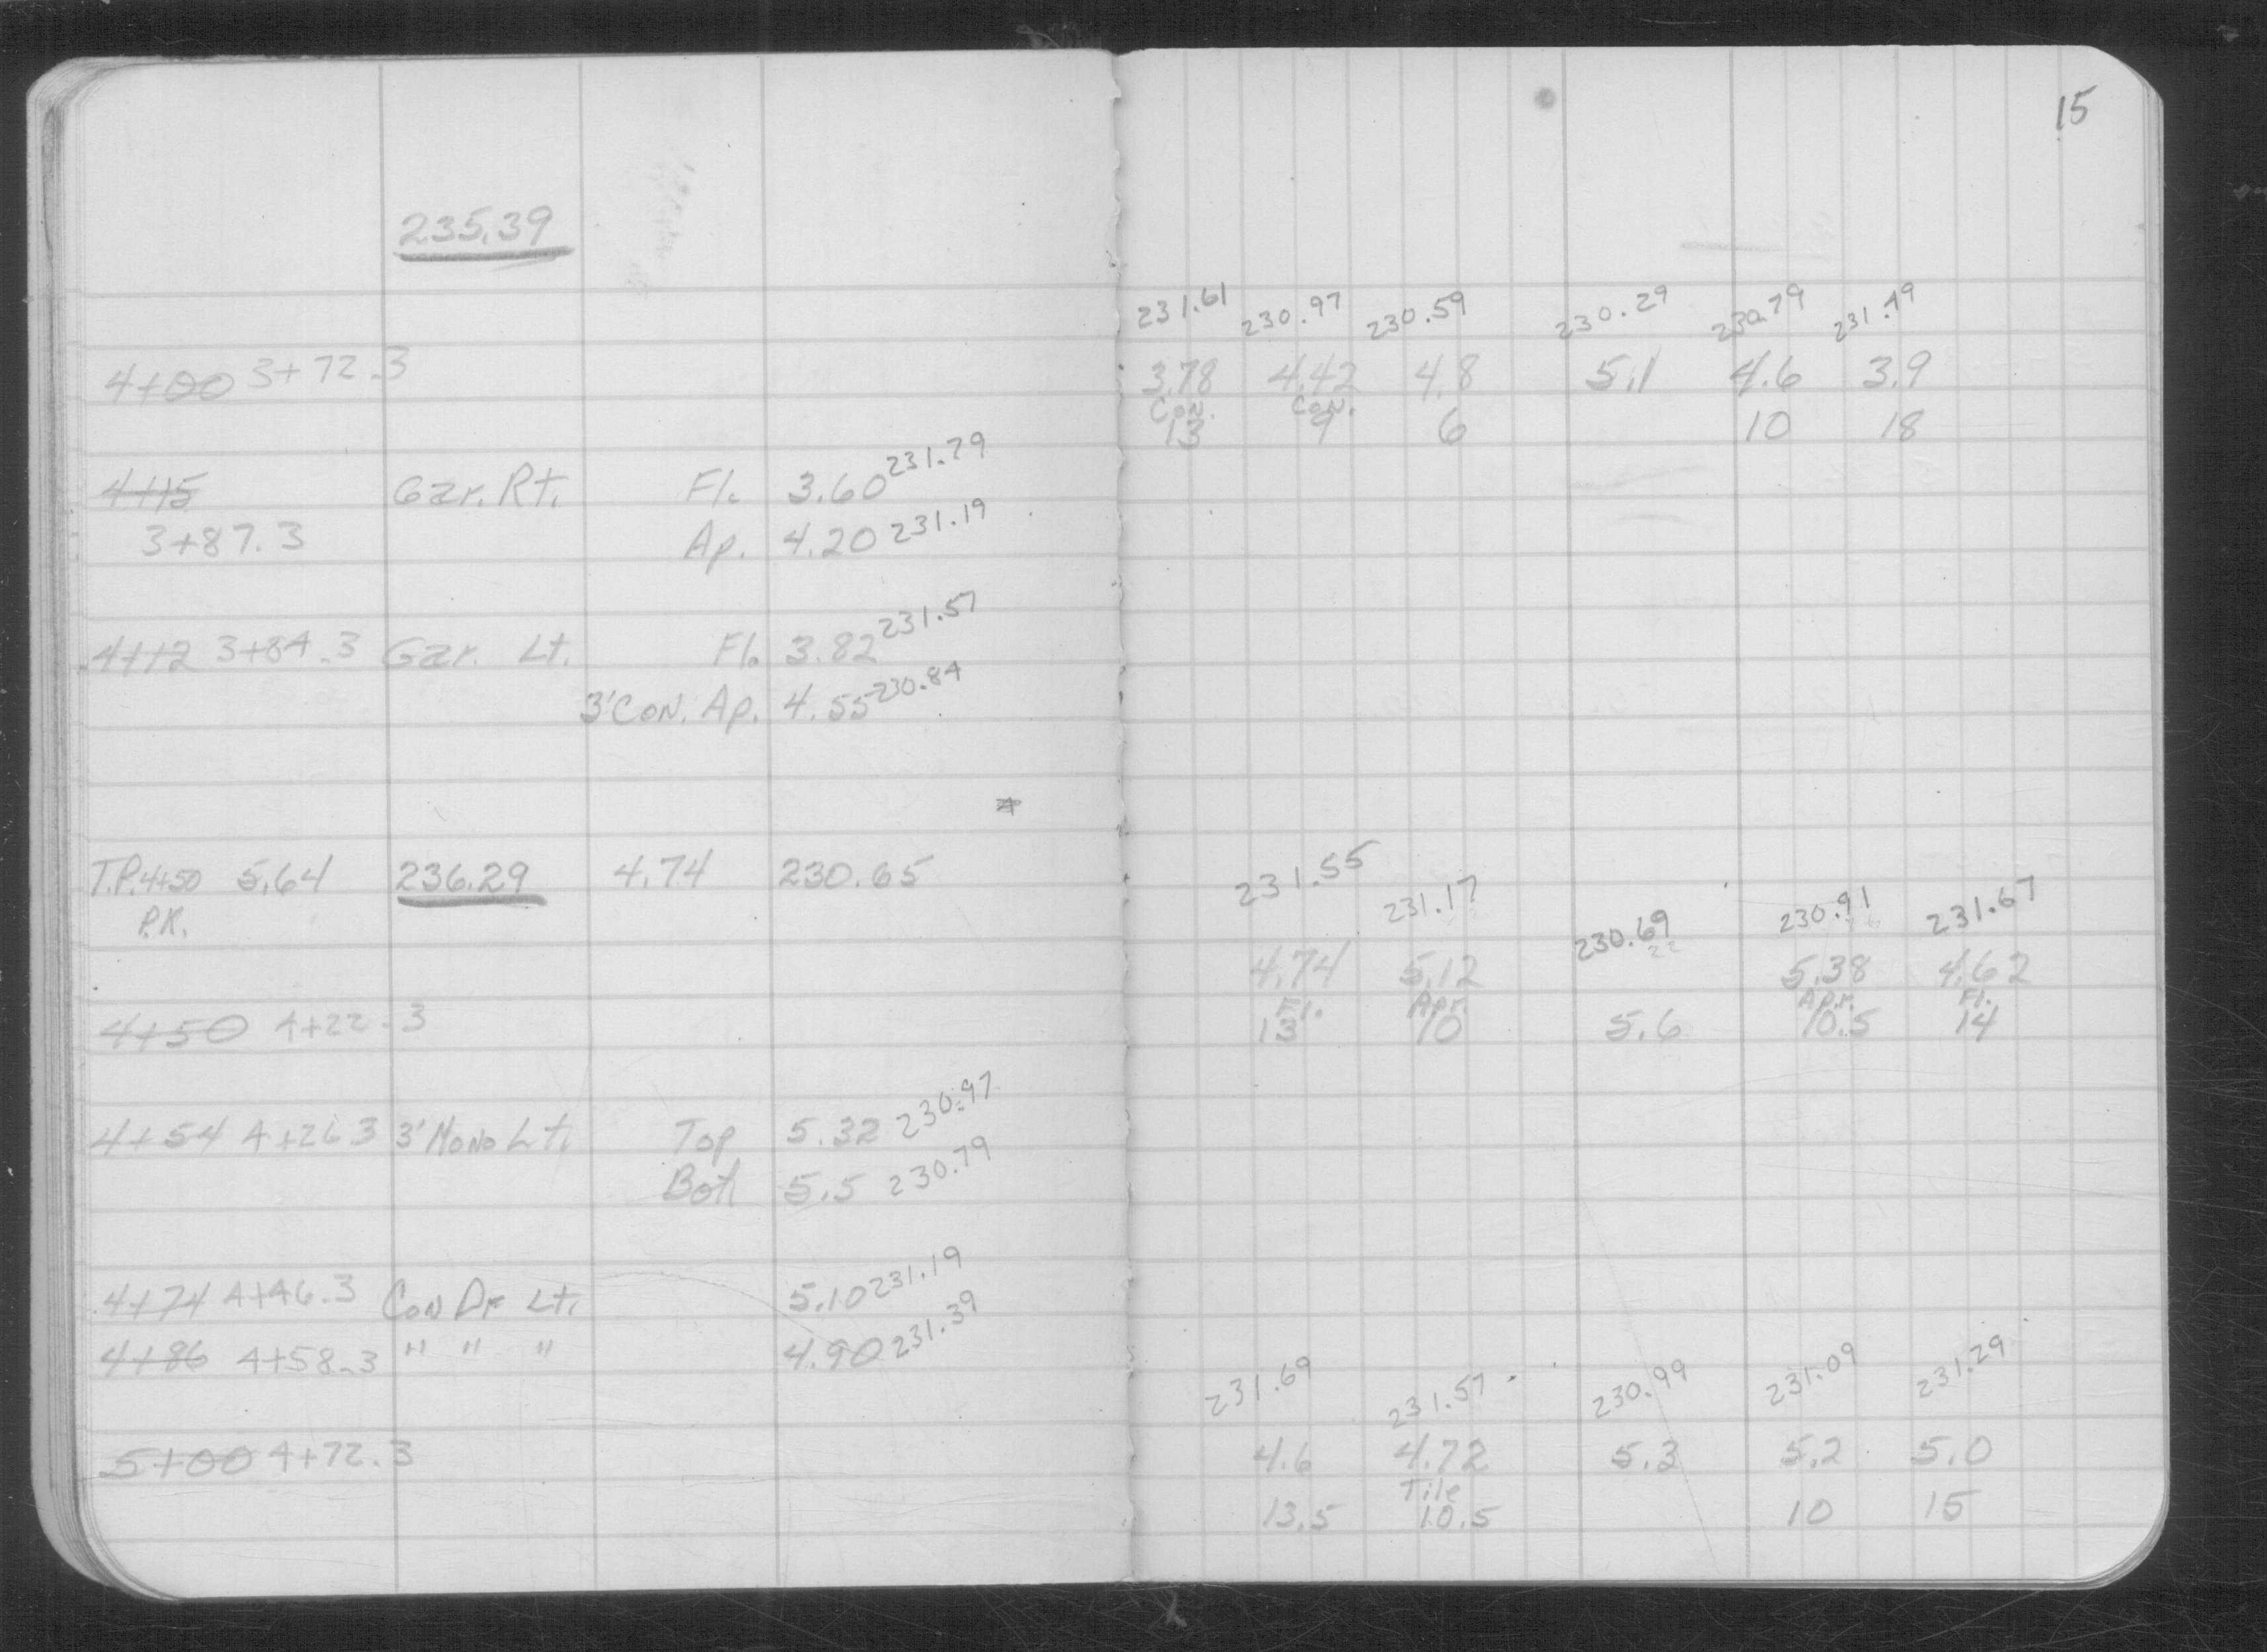 15
235.39
231.61 230.97 230.59 230.29 230.79 231.49
4+00 3+72.3 3.78 4.42 4.8 5.1 4.6 3.9
Con. Con.
13 9 6 10 18
4+15 Gar. Rt. Fl. 3.60 231.79
3+87.3 Ap. 4.20 231.19
4+12 3+84.3 Gar. Lt. Fl. 3.82 231.57
3' Con. Ap. 4.55 230.84
T.P. 4+50 5.64 236.29 4.74 230.65
P.K.
231.55 231.17 230.69 230.91 231.67
4.74 5.12 5.38 4.62
Fl. Apr. Apr. Fl.
4+50 4+22.3 13 10 5.6 10.5 14
4+54 4+26 3 3' Mono Lt. Top 5.32 230.97
Bot 5.5 230.79
4+74 4+46.3 Con Dr Lt. 5.10 231.19
4+86 4+58.3 " " " 4.90 231.39
231.69 231.57 230.99 231.09 231.29
5+00 4+72.3 4.6 4.72 5.3 5.2 5.0
Tile
13.5 10.5 10 15